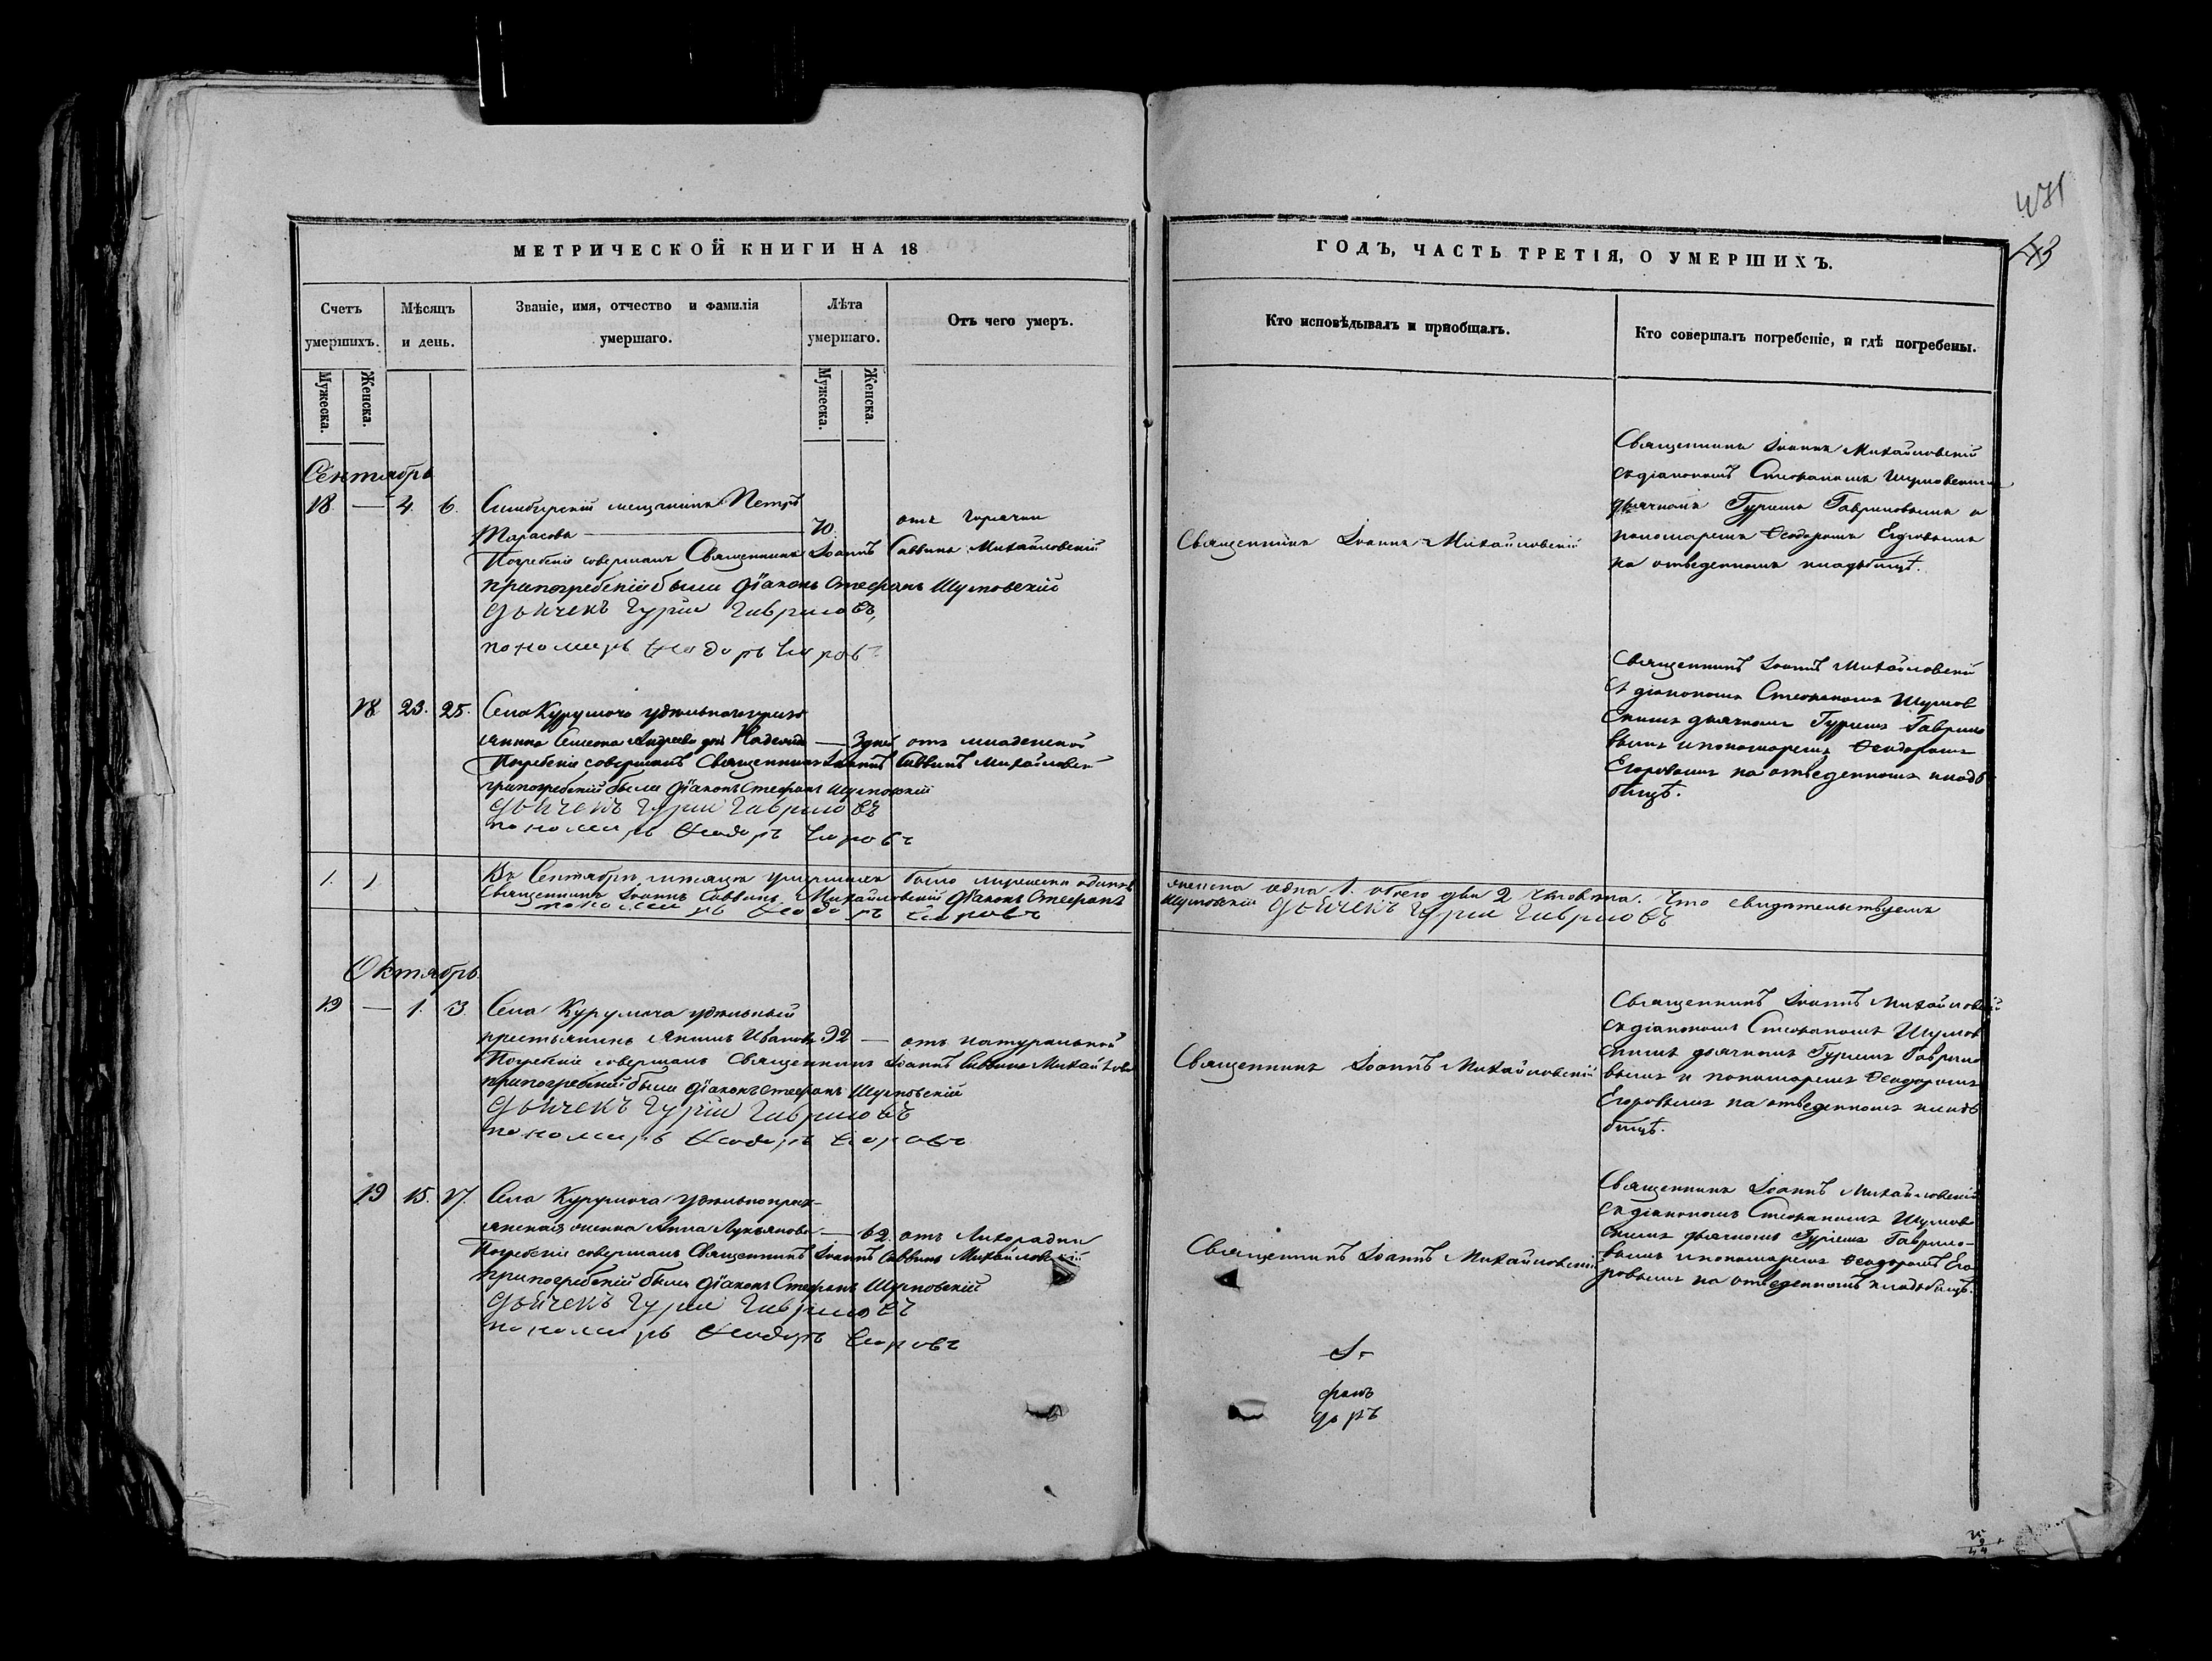 431
43
МЕТРИЧЕСКОЙ КНИГИ НА 18
ГОДЪ, ЧАСТЬ ТРЕТІЯ, О УМЕРШИХЪ.
Счетъ умершихъ.
Мѣсяцъ и день.
Званіе, имя, отчество и фамилія умершаго.
Лѣта умершаго.
Отъ чего умеръ.
Кто исповѣдывалъ и пріобщалъ.
Кто совершалъ погребеніе, и гдѣ погребены.
Мужеска.
Женска.
Мужеска.
Женска.
Сентябрь
18 — 4. 6. Симбирскій мещанинъ Петръ
Тарасовъ — 70. отъ горячки
Погребеніе совершалъ Священникъ Іоаннъ Саввинъ Михайловскій
припогребеніи были Діаконъ Стефанъ Шумовскій
Дьячекъ Гурій Гавриловъ,
пономарь Ѳеодоръ Егоровъ
Священникъ Іоаннъ Михайловскій
Священникъ Іоаннъ Михайловскій
съ діакономъ Стефаномъ Шумовскимъ
дьячкомъ Гуріемъ Гавриловымъ и
пономаремъ Ѳеодоромъ Егоровымъ
на отведенномъ кладбищѣ.
18 23. 25. Села Курумоча удѣльнаго кресть
янина Семена Андреева дочь Надежда — 3 дней отъ младенской
Погребеніе совершалъ Священникъ Іоаннъ Саввинъ Михайловскій
припогребеніи были Діаконъ Стефанъ Шумовскій
Дьячекъ Гурій Гавриловъ
пономарь Ѳеодоръ Егоровъ
Священникъ Іоаннъ Михайловскій
съ діакономъ Стефаномъ Шумов
скимъ дьячкомъ Гуріемъ Гаврило
вымъ и пономаремъ Ѳеодоромъ
Егоровымъ на отведенномъ кладб
бищѣ.
1. 1. Въ Сентябрѣ мѣсяцѣ умершихъ было мужеска одинъ
женска одна 1. обоего два 2 человѣка. Что свидѣтельствуемъ
Священникъ Іоаннъ Саввинъ Михайловскій Діаконъ Стефанъ
Шумовскій Дьячекъ Гурій Гавриловъ
пономарь Ѳеодоръ Егоровъ
Октябрь.
19 — 1. 3. Села Курумоча удѣльный
крестьянинъ Якимъ Ивановъ 92 — отъ натуральной
Погребеніе совершалъ Священникъ Іоаннъ Саввинъ Михайлов
припогребеніи были Діаконъ Стефанъ Шумовскій
Дьячекъ Гурій Гавриловъ
пономарь Ѳеодоръ Егоровъ
Священникъ Іоаннъ Михайловскій
Священникъ Іоаннъ Михайловскій
съ діакономъ Стефаномъ Шумов
скимъ дьячкомъ Гуріемъ Гаврило
вымъ и пономаремъ Ѳеодоромъ
Егоровымъ на отведенномъ кладб
бищѣ.
19 15. 17. Села Курумоча удѣльнокресть-
янская женка Анна Лукьянова — 62. отъ Лихорадки
Погребеніе совершалъ Священникъ Іоаннъ Саввинъ Михайловскій
припогребеніи были Діаконъ Стефанъ Шумовскій
Дьячекъ Гурій Гавриловъ
пономарь Ѳеодоръ Егоровъ
Священникъ Іоаннъ Михайловскій
Священникъ Іоаннъ Михайловскій
съ діакономъ Стефаномъ Шумов
скимъ дьячкомъ Гуріемъ Гаврило-
вымъ и пономаремъ Ѳеодоромъ Его
ровымъ на отведенномъ кладбищѣ.
фанъ
доръ